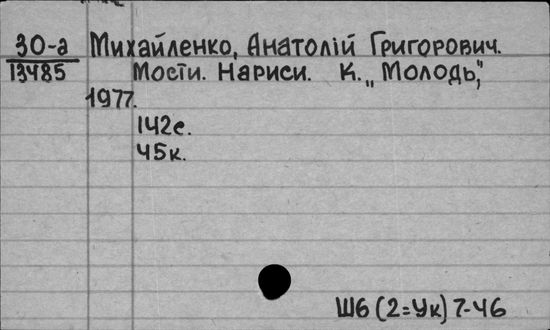 30-а Михайленко, Анатолій Григорович.
13485 Мости. Нариси. К. „Молодь,"
1977.
142с.
45к.
Ш6(2=Ук)7-46